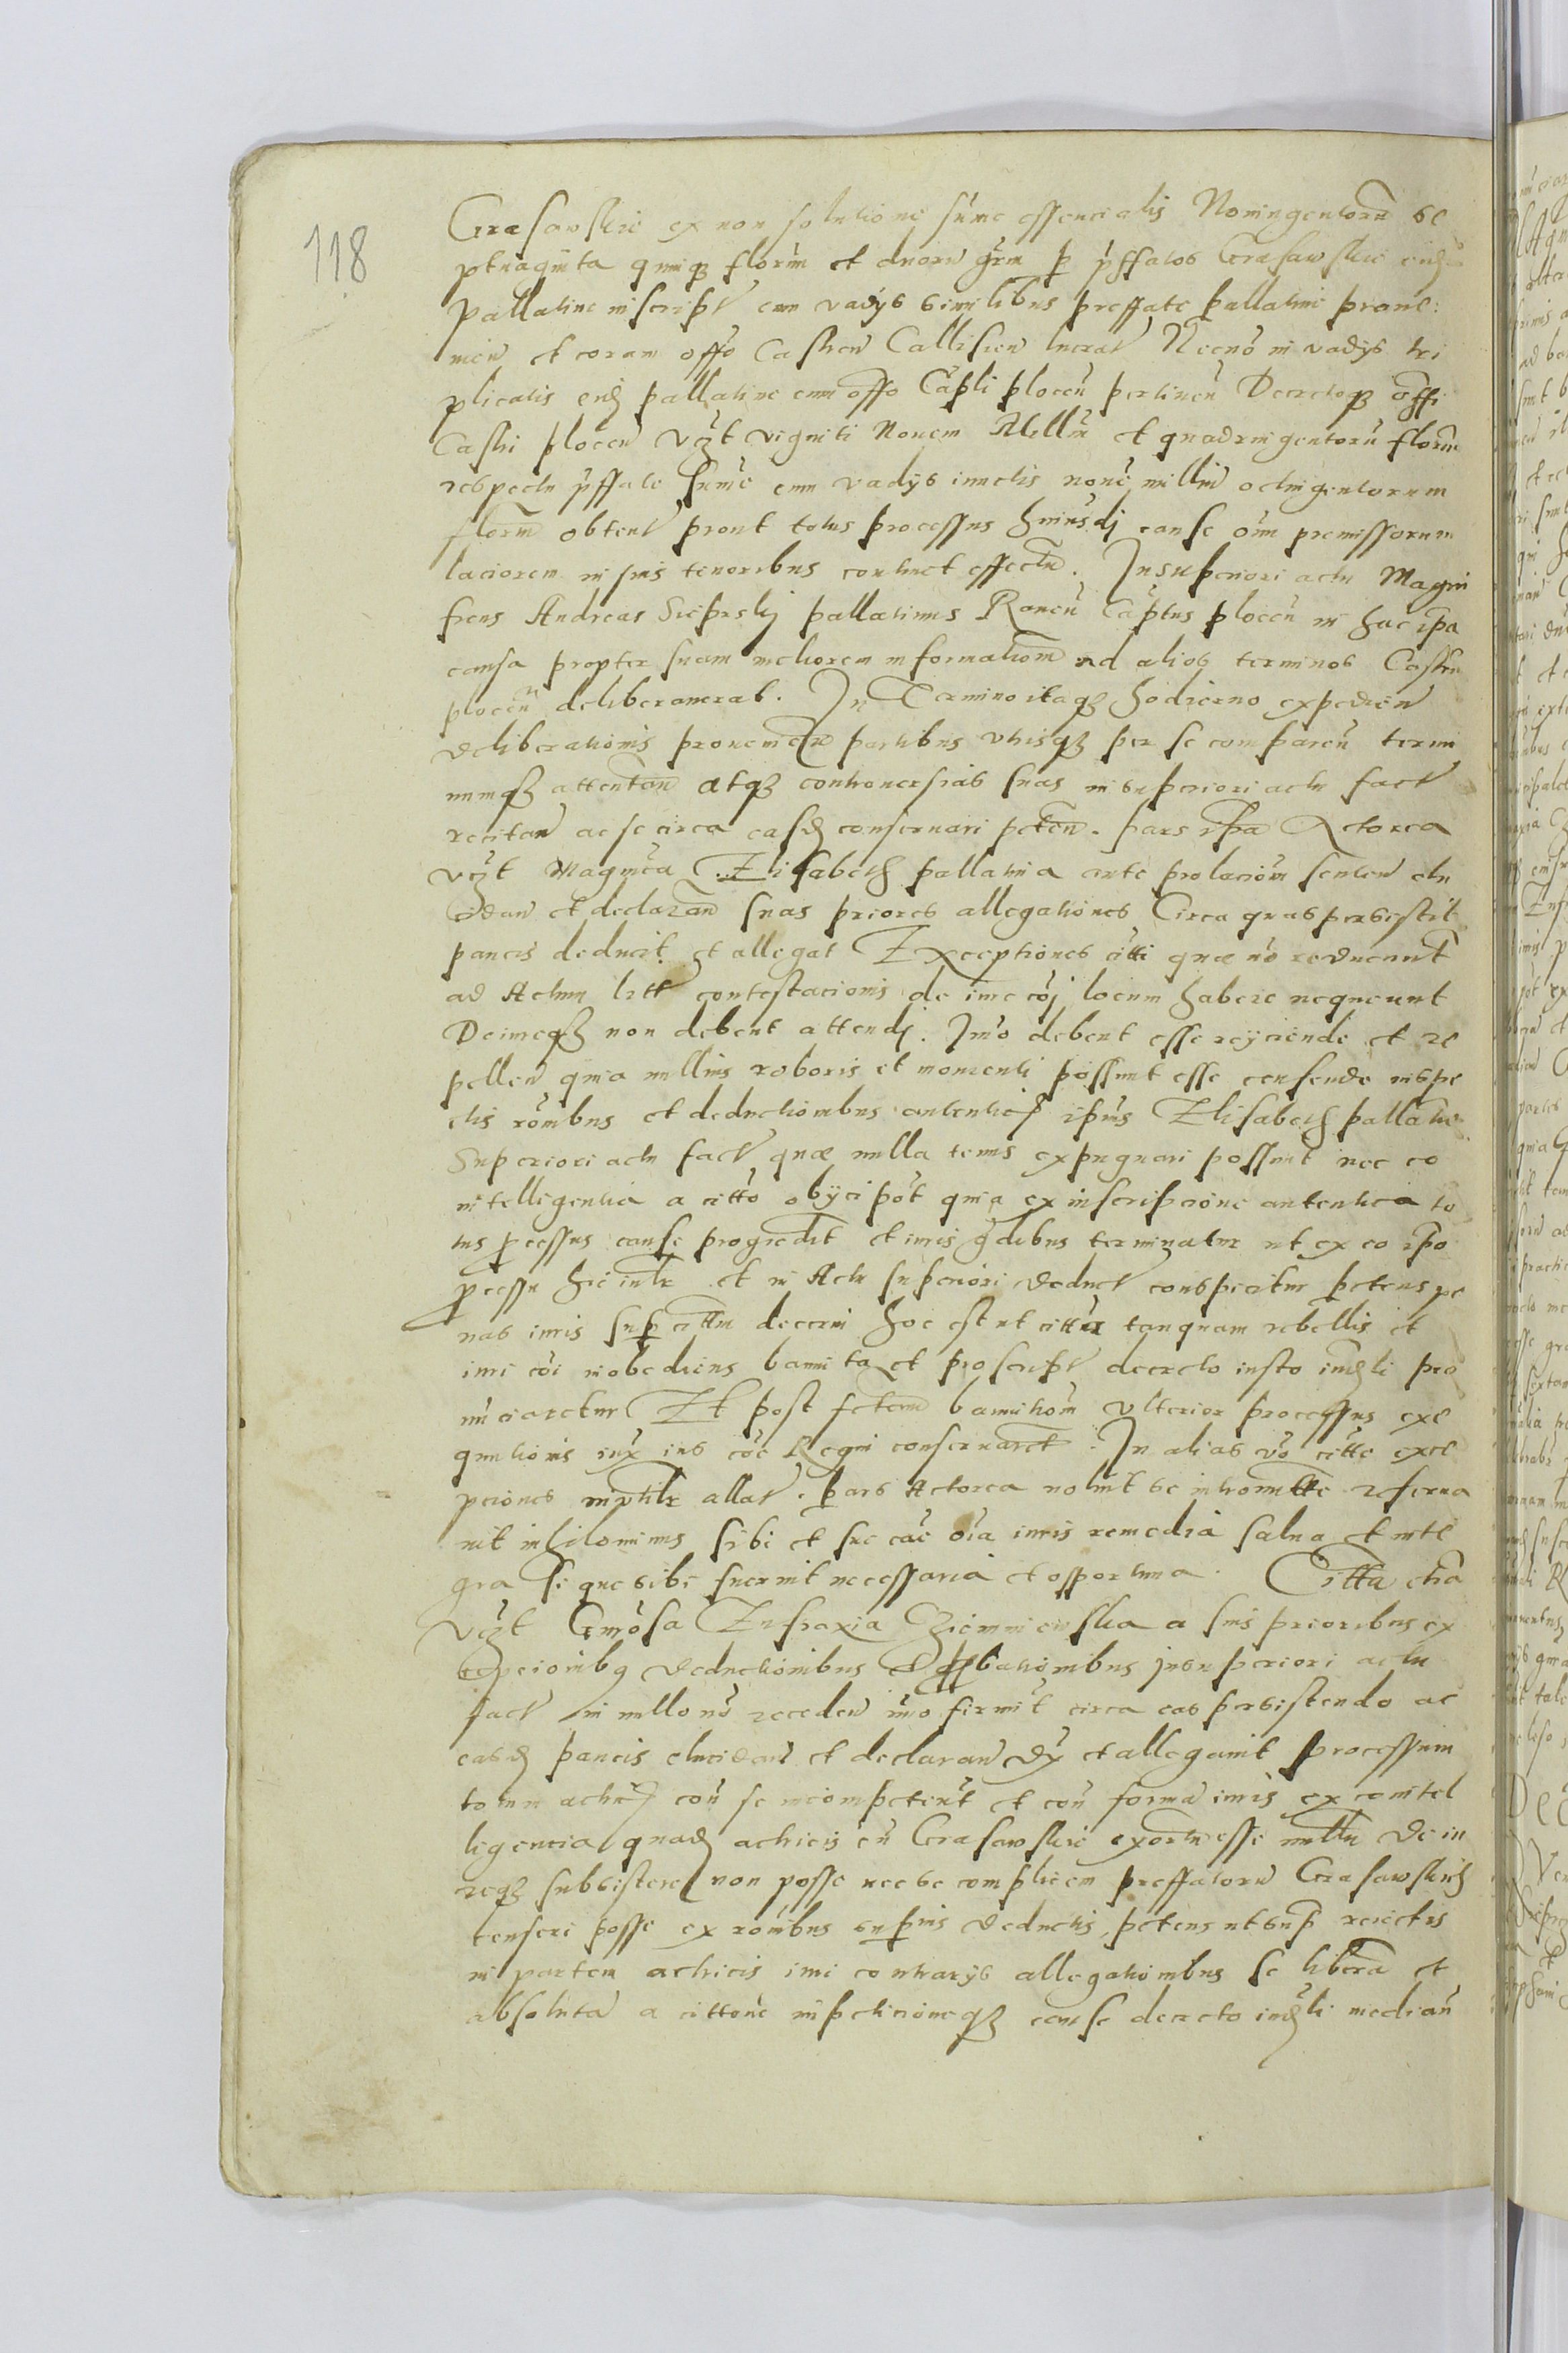 118
Grasawskie ex non solutione sume essencialis Noningentoru se
ptuagīta quinq florm et duoru grm p pffatos Grasawskie eid
Pallatine inscript cum vadys similibus preffate pallatine prove:
nien et coram offo Castren Callisien lucrat Necnō in vadys tri
plicatis eid pallatine cum offo Capli plocen pertinen Decretoq offi
Castri plocen vzt viginti Novem Mellm et quadringentoru florm
respectu pffate sume cum vadys iunctis nove millm octingentorum
florm obtent prout totus processus huiusdj cause oim premissorum
laciorem in suis tenoribus continet effectu. In superiori actu Magni
ficus Andreas Sieprskj pallatinus Raven Captus plocen in hac ipa
causa propter suam meliorem informationē ad alios terminos Castren
plocen deliberaverat. In Termino itaq hodierno ex pedien
deliberationis provenien partibus utrisq per se comparen termi
numq attentan atq controversias suas in superiori actu fact
recitan ac se circa easd conservari peten. pars ipa Actorea
vzt Magnca Elisabeth pallatina ante prolaciōm senten elu
cidan et declaran suas priores allegationes Circa quas persistit
paucis deducit et allegat Exceptiones citti quæ nō reducunt
ad Actum litt contestacionis de iure cōj locum habere nequeunt
Deiureq non debent attendj. Imō debent esse reyciende et re
pellen quia nullius roboris et momenti possunt esse censende inspe
ctis rōnibus et deductionibus autenticis ipius Elisabeth pallatine
Superiori actu fact quæ nulla tenus expugnari possunt nec eo
intelligentia a citto obyci pōt quia ex inscripcione autentica to
tus pcessus cause progredit et iuris gdibus terminatur ut ex eo ipo
pcessu hic intr et in Actu superiori deduct conspicitur petens pe
nas iuris sup cittm decerni hoc est ut citta tanquam rebellis et
iuri cōi inobediens bannita et proscript decreto iusto iudli pro
nūciaretur Et post fctam bannitiom ulterior processus exe
qutionis iux ius cōe Regni conservaret. In alias vō citte exce
pciones inutilr allat. pars Actorea noluit se intromitte reserva
vit nihilominus sibi et sue cae oīa iuris remedia salva et inte
gra si que sibi fuerint necessaria et opportuna. Citta etia
vzt Gnrōsa Eufraxia Cziemniewska a suis prioribus ex
cepcionibq deductionibus et pbationibus in superiori actu
fact in nullo nō receden imo firmit circa eas persistendo ac
easd paucis elucidan et declaran dx et allegavit processum
totum actus con se incompetent et con forma iuris ex eo intel
ligencia quad actricis cu Grasawskie exortu esse nullu de iu
req subsistere non posse nec se complicem preffatoru Grasawskich
censeri posse ex rōnibus supius deductis, petens ut sup reiectis
in partem actricis iuri contrarys allegationibus se libera et
absoluta a cittone impeticioneq cause decreto iudli median